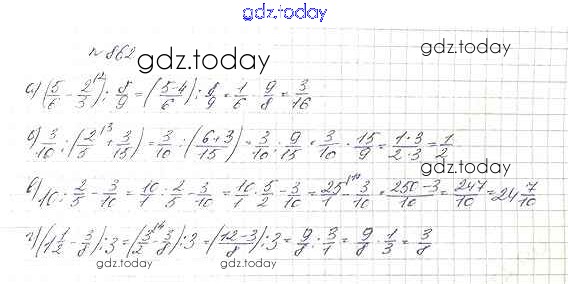 gdz.today
№ 862
gdz.today
gdz.today
а) (5/6 - 2/3) : 8/9 = (5-4/6) : 8/9 = 1/6 · 9/8 = 3/16
б) 3/10 : (2/5 + 3/15) = 3/10 : (6+3/15) = 3/10 : 9/15 = 3/10 · 15/9 = 1·3/2·3 = 1/2
в) 10 : 2/5 - 3/10 = 10/1 : 2/5 - 3/10 = 10/1 · 5/2 - 3/10 = 25/1 - 3/10 = 250-3/10 = 247/10 = 24 7/10
gdz.today
г) (1 1/2 - 3/8) : 3 = (3/2 - 3/8) : 3 = (12-3/8) : 3 = 9/8 : 3/1 = 9/8 · 1/3 = 3/8
gdz.today
gdz.today